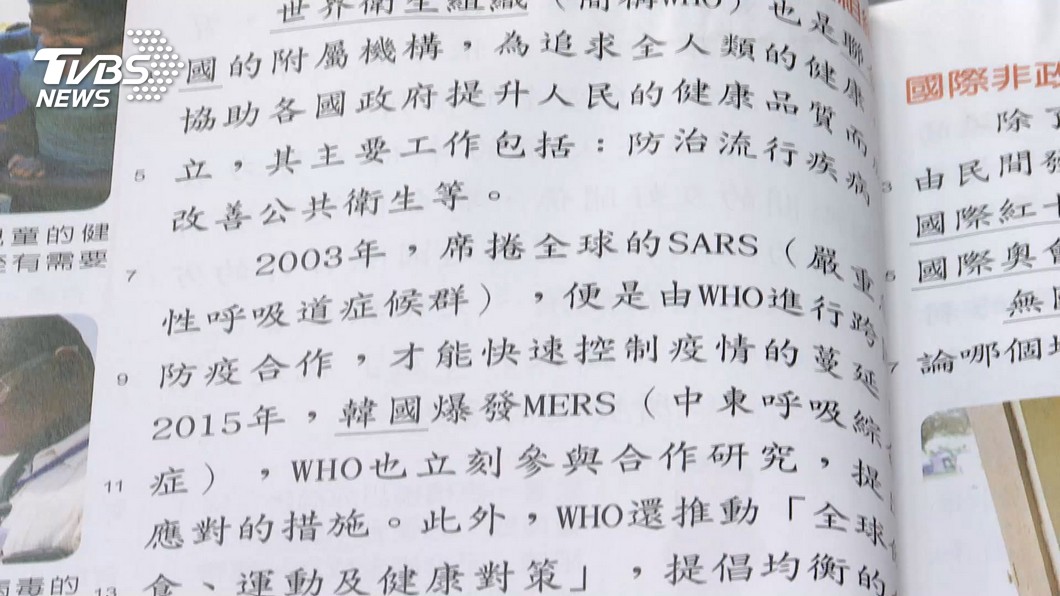 TVBS
NEWS
世界衛生組織（簡稱WHO）也是聯
國的附屬機構，為追求全人類的健康
協助各國政府提升人民的健康品質而
立，其主要工作包括：防治流行疾病
5
改善公共衛生等。
2003年，席捲全球的SARS（嚴重
7
性呼吸道症候群），便是由WHO進行跨
防疫合作，才能快速控制疫情的蔓延
9
2015年，韓國爆發MERS（中東呼吸綜
症），WHO也立刻參與合作研究，提
11
應對的措施。此外，WHO還推動「全球
食、運動及健康對策」，提倡均衡的
13
童的健
有需要
毒的
國際非政
除了
3
由民間發
國際紅十
5
國際奧會
無
7
論哪個地